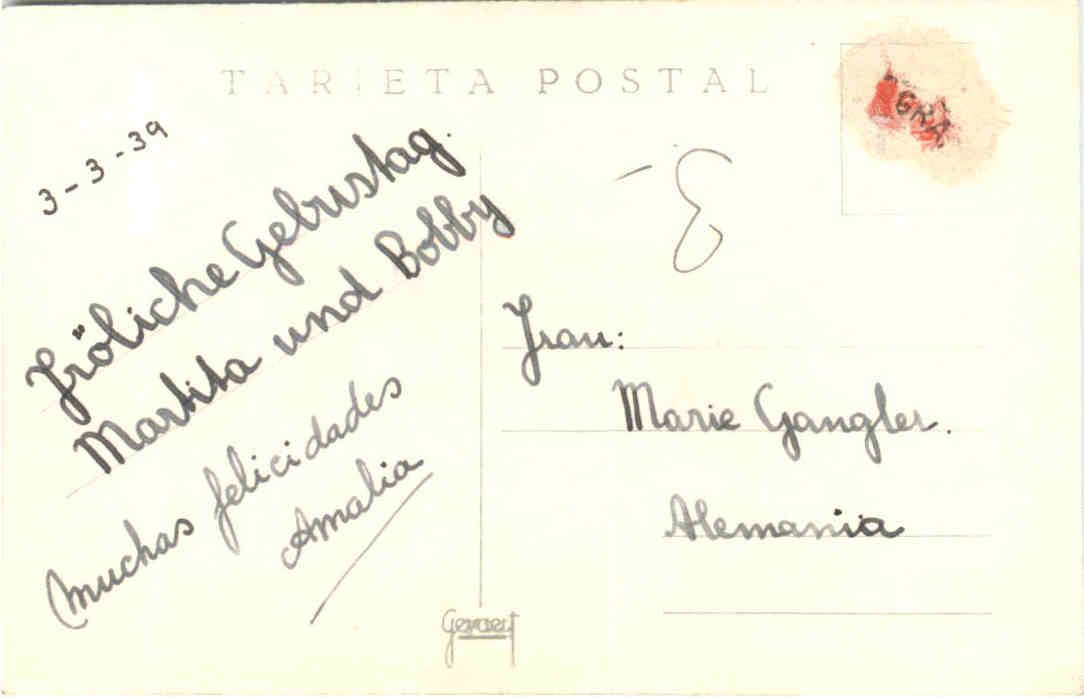 TARJETA POSTAL
GRA
3-3-39
Fröliche Gebustag.
Martita und Bobby
Muchas felicidades
Amalia
Frau:
Marie Gangler.
Alemania
Gevaert